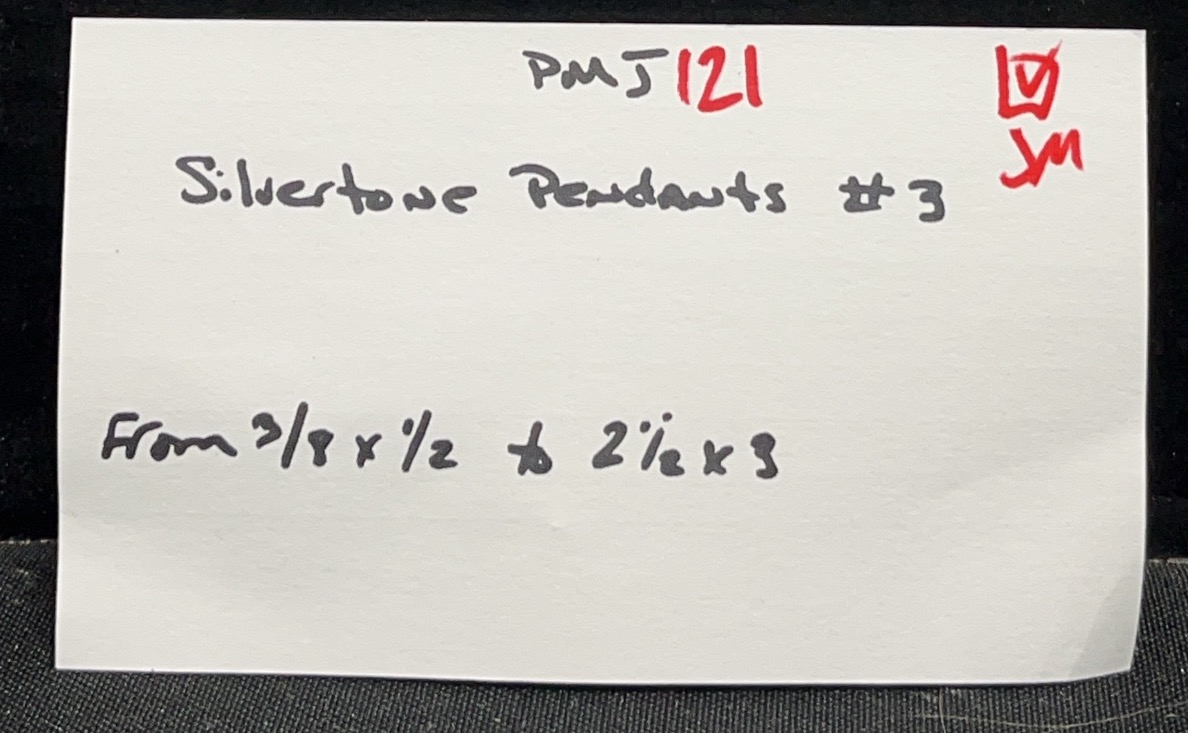 PMJ121
☑
JM
Silvertone Pendants #3
From 3/8 x 1/2 to 2 1/2 x 3